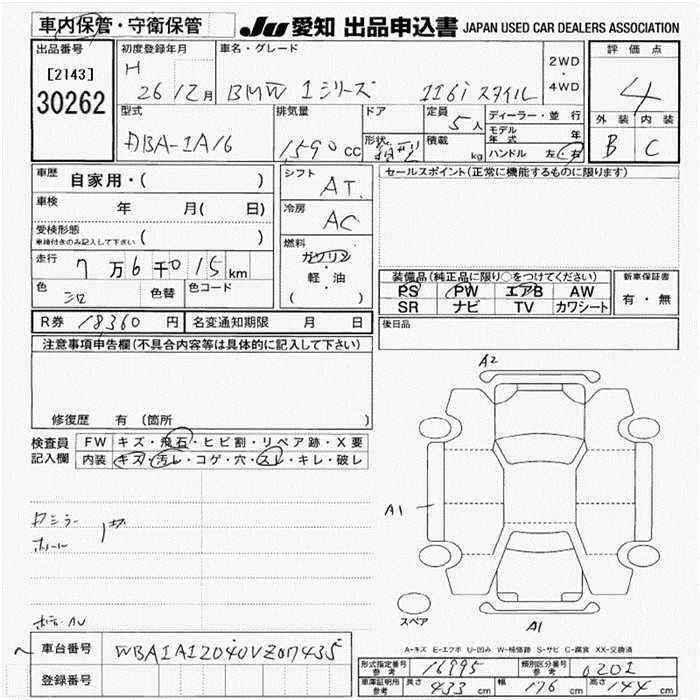 車内保管・守衛保管 JU 愛知 出品申込書 JAPAN USED CAR DEALERS ASSOCIATION
出品番号 初度登録年月 車名・グレード 2WD・4WD 評価点
[2143] H 26 12月 BMW 1シリーズ 116i スタイル 4
30262
型式 排気量 ドア 定員 ディーラー・並行 外装 内装
DBA-1A16 1,590 cc 形状 5人 積載 kg モデル年式 年 B C
ハンドル 左・右
車歴 自家用・( ) シフト AT セールスポイント(正常に機能するものに限ります)
車検 年 月( 日) 冷房 AC
受検形態 車検付きのみ記入して下さい ( )
燃料 ガソリン
走行 7万6千015km 軽・油
装備品(純正品に限り○をつけてください) 新車保証書
色 シロ 色替 色コード ( ) PS PW エアB AW 有・無
SR ナビ TV カワシート
R券 18,360円 名変通知期限 月 日 後日品
注意事項申告欄(不具合内容等は具体的に記入して下さい)
修復歴 有 〔箇所 〕
検査員記入欄 FW キズ・飛石・ヒビ割・リペア跡・X要
内装 キズ・汚レ・コゲ・穴・スレ・キレ・破レ
A2
A1
ホイール
スペア
A1
A-キズ E-エクボ U-凹み W-補修跡 S-サビ C-腐食 XX-交換済
車台番号 WBA1A12040VZ07435
登録番号
形式指定番号 参考 16995 類別区分番号 参考 0201
車庫証明用 参考 長さ 433 cm 幅 176 cm 高さ 144 cm